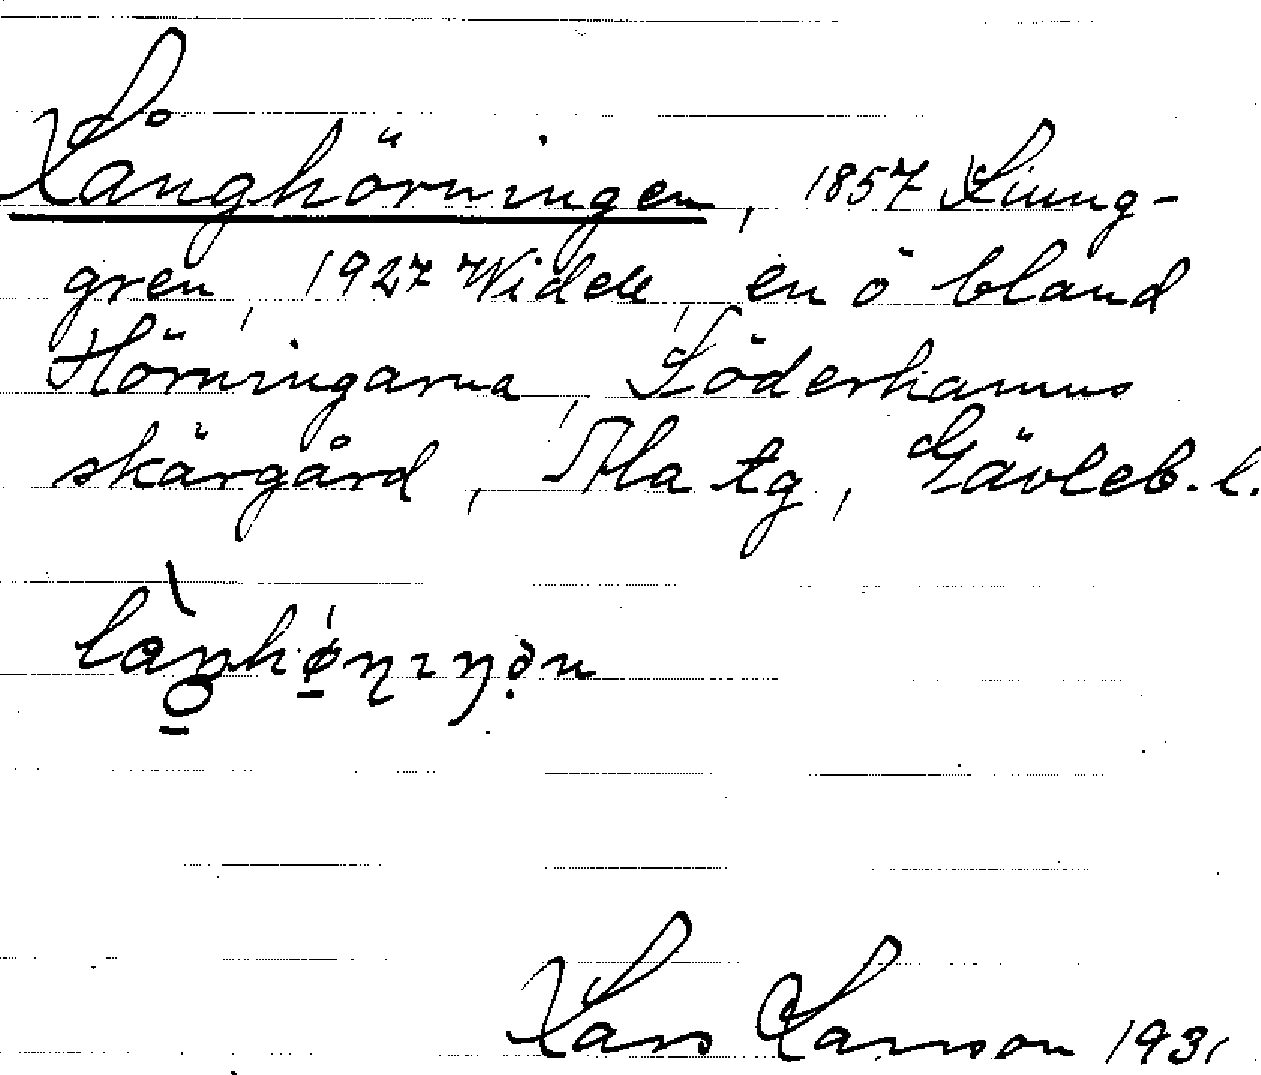 Långhörningen, 1857 Ljung-
gren, 1927 Widell, en ö bland
Hörningarna, Söderhamns
skärgård, Ala tg, Gävleb. l.
Lars Larsson 1931